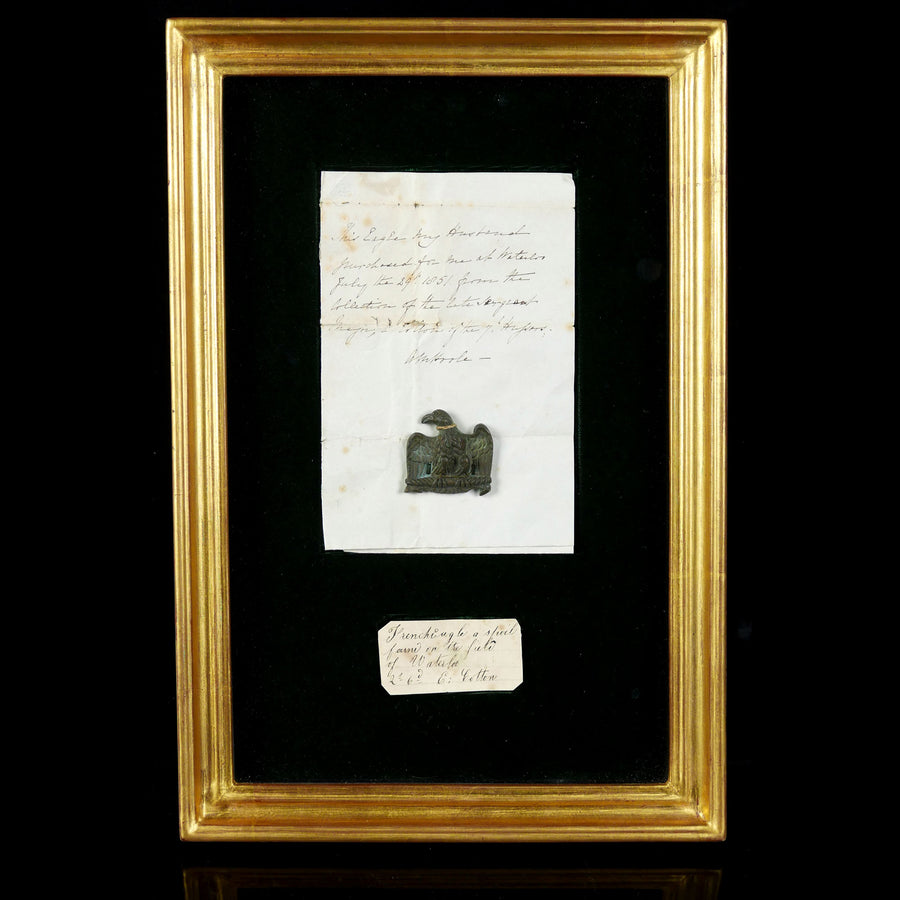 This Eagle my Husband
purchased for me at Waterloo
July the 29th 1851 from the
Collection of the late Sergeant
Major Cotton of the 7th Hussars.
French Eagle a spoil
found on the field
of Waterloo
2s 6d C: Cotton